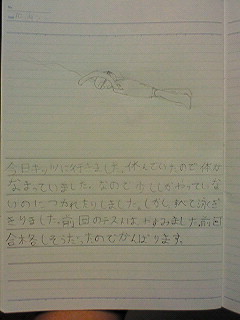 今日ホッツに行きました。休んでいたので体が
なまっていました。なので少ししかやっていない
のにつかれたりしました。しかし、すべて泳ぎ
きりました。前回のテストは 休みました。前回
合格しそうだったのでがんばります。